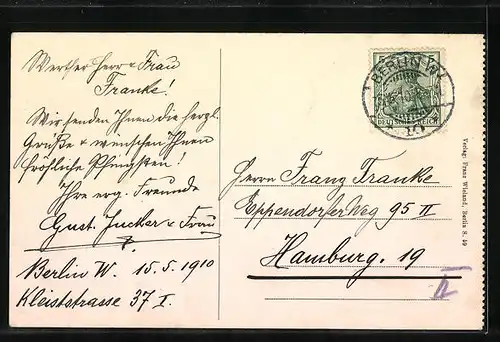 Werther Herr u Frau
Franke!
Wir senden Ihnen die herzl.
Grüße u wünschen Ihnen
fröhliche Pfingsten!
Ihre erg. Freunde
Gust. Jucker u Frau
Berlin W. 15.5.1910
Kleiststrasse 37 I.
BERLIN W
DEUTSCHES REICH
Herrn Franz Franke
Eppendorfer Weg 95 II
Hamburg. 19
II
Verlag: Franz Wieland, Berlin S. 59